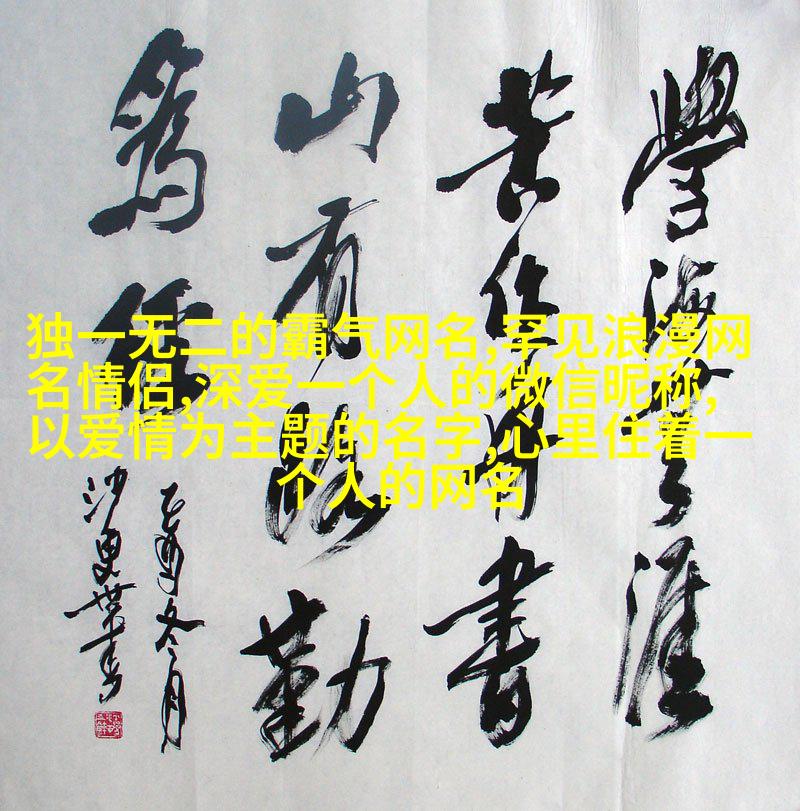 學海無涯
苦作舟書
山有路勤
為徑
乙酉冬月
沙更世書
独一无二的霸气网名,罕见浪漫网
名情侣,深爱一个人的微信昵称,
以爱情为主题的名字,心里住着一
个人的网名